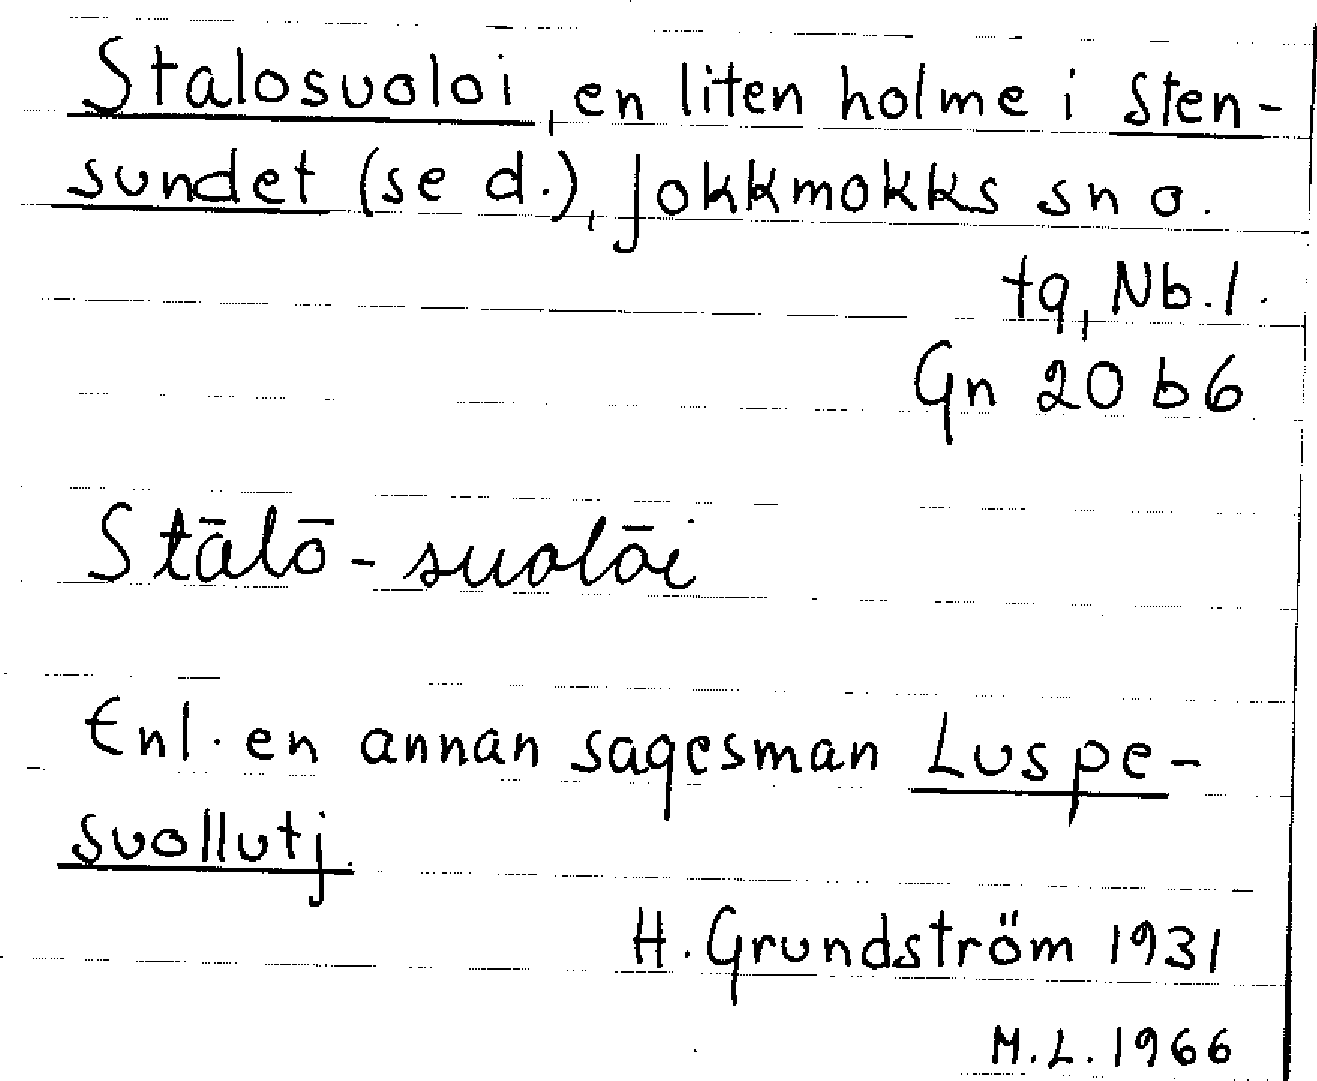 Stalosuoloi, en liten holme i Sten-
sundet (se d.), Jokkmokks sn o.
tg, Nb. l.
Gn 20 b6
Stālō-suolōi
Enl. en annan sagesman Luspe-
suollutj.
H. Grundström 1931
M.L. 1966